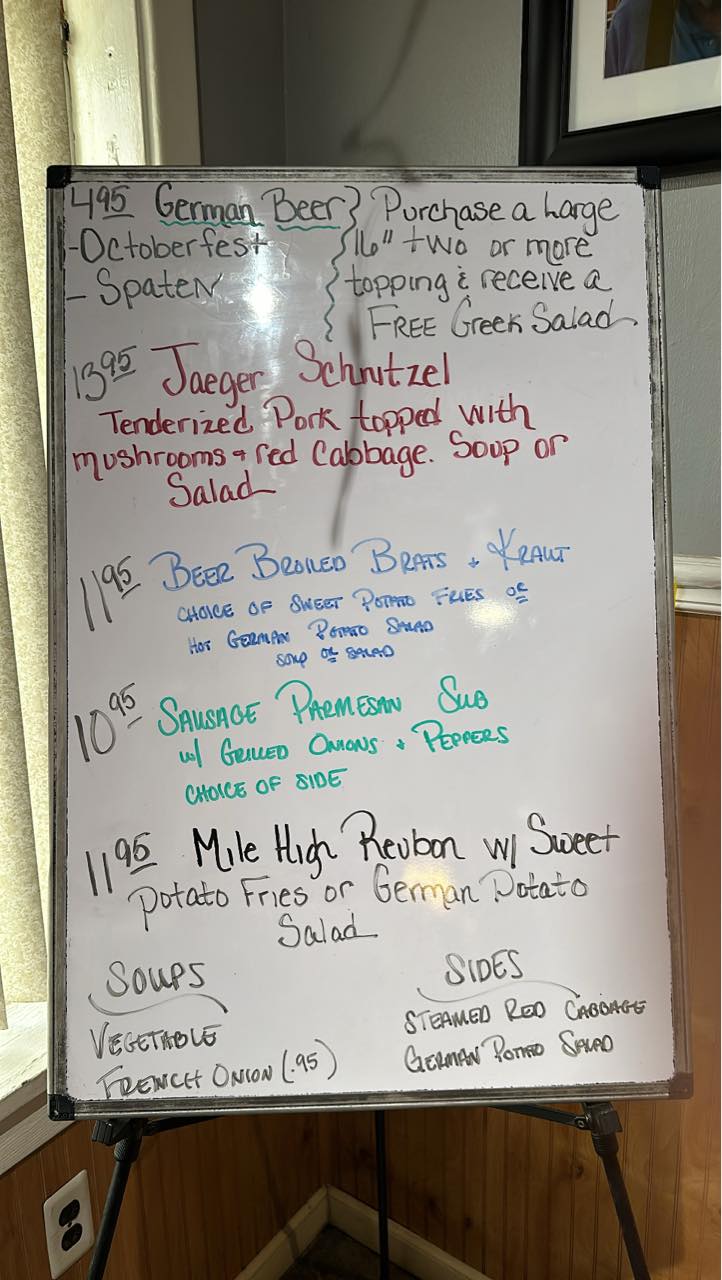 4.95 German Beer
-Octoberfest
- Spaten
Purchase a Large
16" two or more
topping & receive a
FREE Greek Salad
13.95 Jaeger Schnitzel
Tenderized Pork topped with
mushrooms + red Cabbage. Soup or
Salad
11.95 BEER BROILED BRATS + KRAUT
CHOICE OF SWEET POTATO FRIES OR
HOT GERMAN POTATO SALAD
SOUP OR SALAD
10.95 SAUSAGE PARMESAN SUB
w/ GRILLED ONIONS + PEPPERS
CHOICE OF SIDE
11.95 Mile High Reubon w/ Sweet
Potato Fries or German Potato
Salad
SOUPS
VEGETABLE
FRENCH ONION (.95)
SIDES
STEAMED RED CABBAGE
GERMAN POTATO SALAD